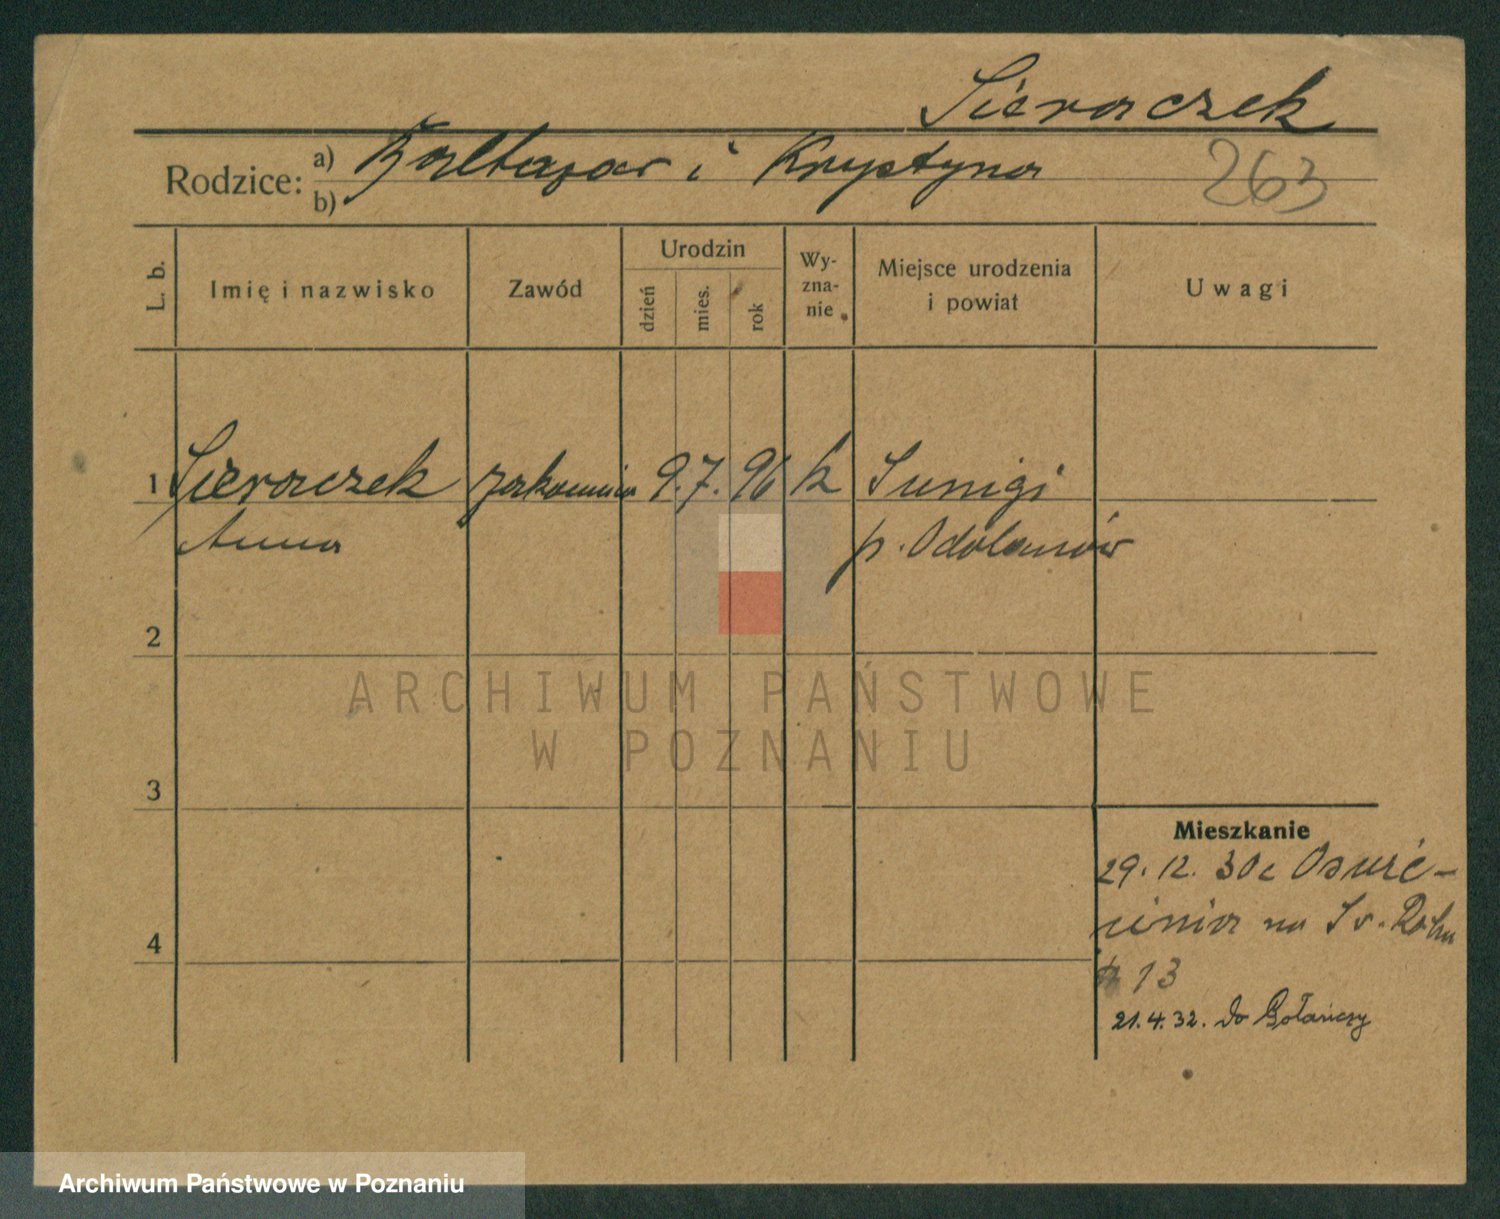 Sieraczek
Rodzice: a) Baltazar i Krystyna
b)
263
L. b.
Imię i nazwisko
Zawód
Urodzin
dzień
mies.
rok
Wy-
zna-
nie
Miejsce urodzenia
i powiat
Uwagi
1 Sieraczek zakonnica 9. 7. 96 k
Anna p. Odolanów
2
3
4
Mieszkanie
29. 12. 30 z
na Św. Rocha
13
21. 4. 32. do Gołańczy
ARCHIWUM PAŃSTWOWE
W POZNANIU
Archiwum Państwowe w Poznaniu